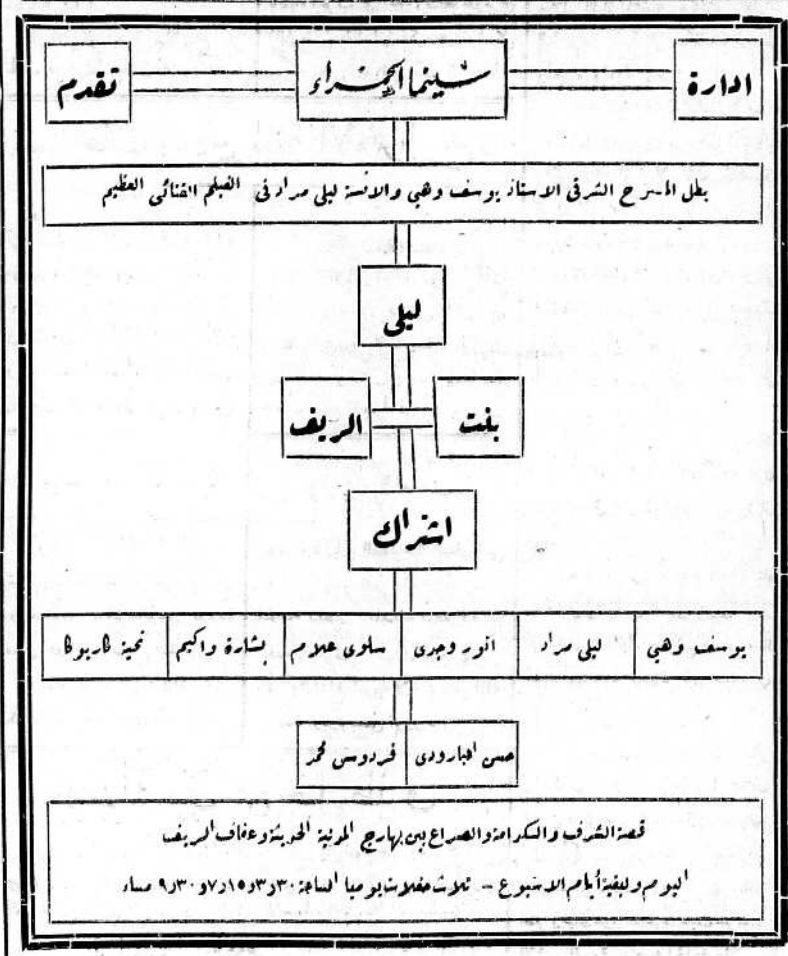 ادارة
سينما الحمراء
تقدم
بطل المسرح الشرقى الاستاذ يوسف وهبي والانسة ليلى مراد فى الفيلم الغنائى العظيم
ليلى
بنت الريف
اشتراك
يوسف وهبي ليلى مراد انور وجدى سلوى علام بشارة واكيم تحية كاريوكا
حسن البارودى فردوس محمد
قصة الشرف والكرامة والصراع بين بهارج المدنية الحديثة وعفاف الريف
اليوم ولبقية أيام الاسبوع – ثلاث حفلات يوميا الساعة ٣٠و٣ و١٥و٧ و٣٠و٩ مساء